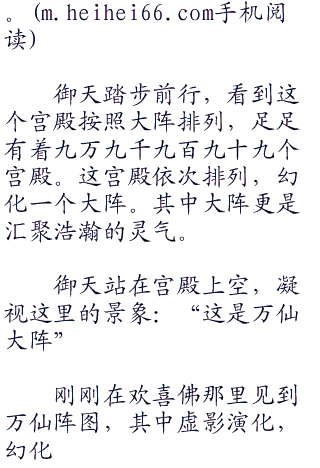 。(m.heihei66.com手机阅
读)
御天踏步前行，看到这
个宫殿按照大阵排列，足足
有着九万九千九百九十九个
宫殿。这宫殿依次排列，幻
化一个大阵。其中大阵更是
汇聚浩瀚的灵气。
御天站在宫殿上空，凝
视这里的景象：“这是万仙
大阵”
刚刚在欢喜佛那里见到
万仙阵图，其中虚影演化，
幻化